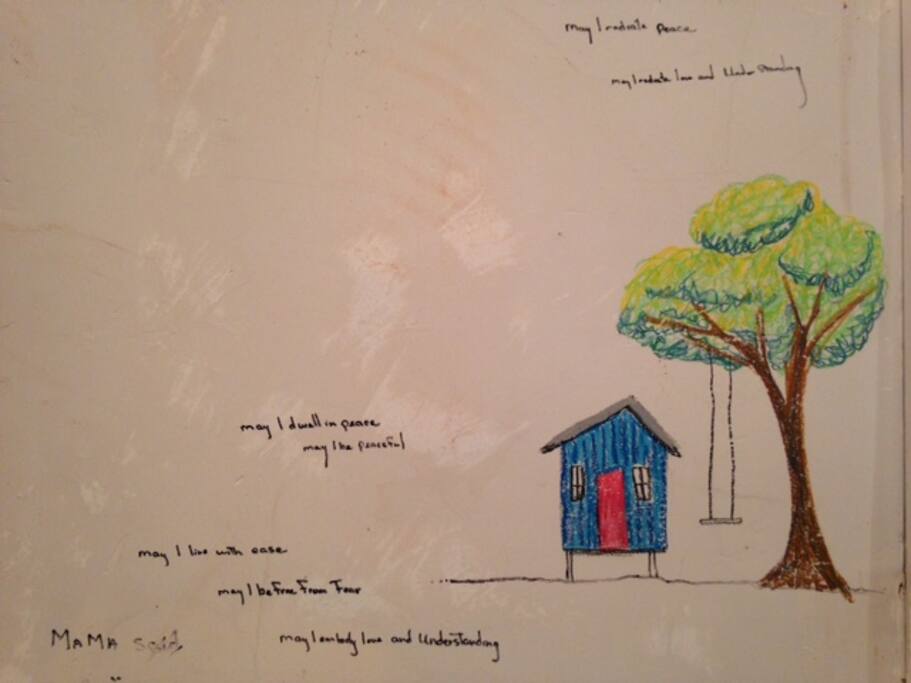 may I radiate peace
may I radiate love and Understanding
may I dwell in peace
may I be peaceful
may I live with ease
may I be Free From Fear
may I embody love and Understanding
MAMA said